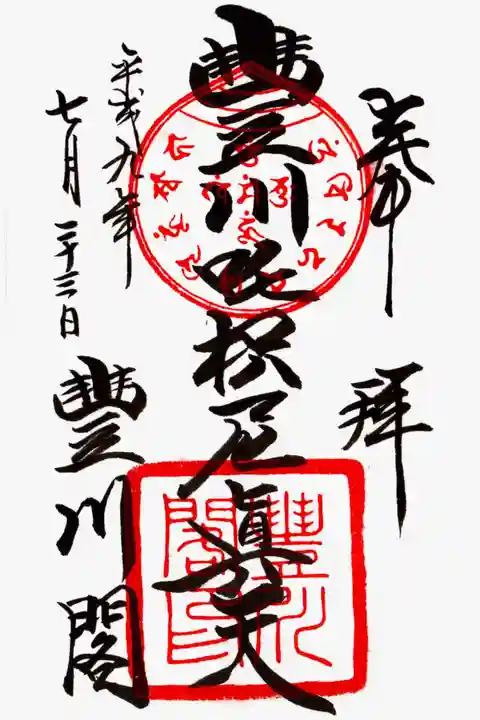 奉拝
豐川吒枳尼眞天
平成九年
七月二十三日
豐川閣
豐川閣印